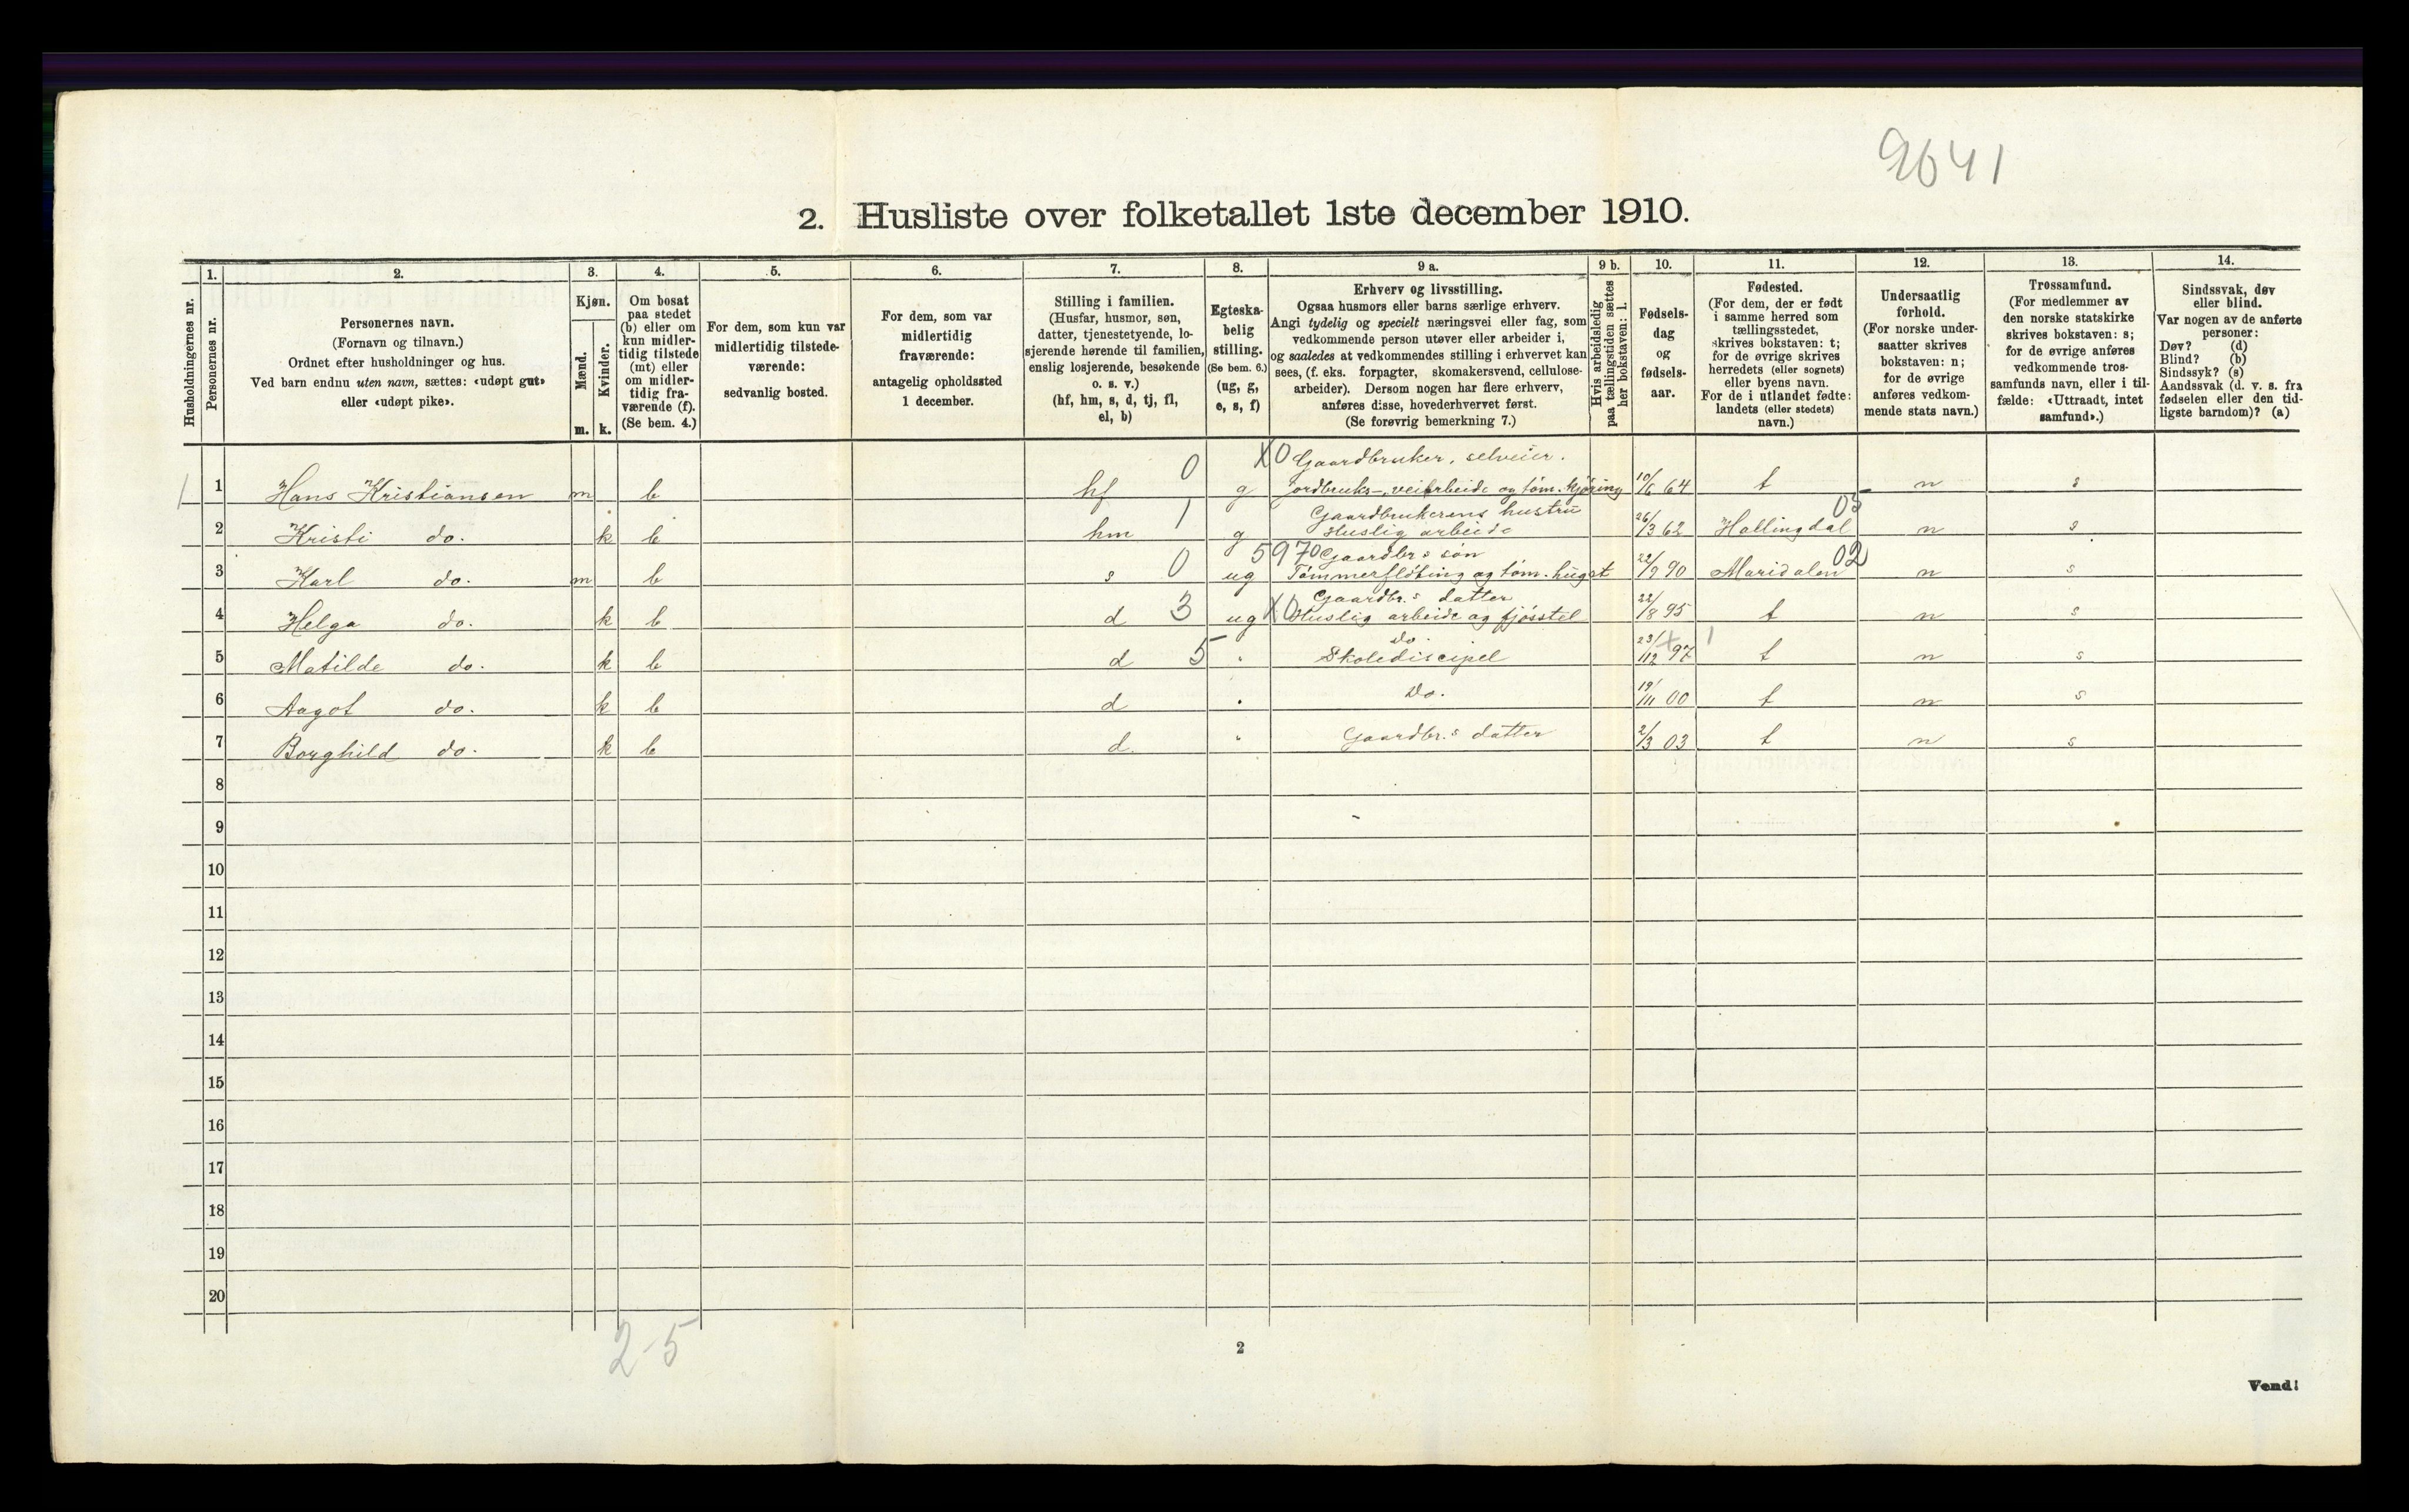 2641
2. Husliste over folketallet 1ste december 1910.
Husholdningernes nr.
1.
Personernes nr.
2.
Personernes navn.
(Fornavn og tilnavn.)
Ordnet efter husholdninger og hus.
Ved barn endnu uten navn, sættes: «udøpt gut»
eller «udøpt pike».
3.
Kjøn.
Mænd.
Kvinder.
m. k.
4.
Om bosat
paa stedet
(b) eller om
kun midler-
tidig tilstede
(mt) eller
om midler-
tidig fra-
værende (f).
(Se bem. 4.)
5.
For dem, som kun var
midlertidig tilstede-
værende:
sedvanlig bosted.
6.
For dem, som var
midlertidig
fraværende:
antagelig opholdssted
1 december.
7.
Stilling i familien.
(Husfar, husmor, søn,
datter, tjenestetyende, lo-
sjerende hørende til familien,
enslig losjerende, besøkende
o. s. v.)
(hf, hm, s, d, tj, fl,
el, b)
8.
Egteska-
belig
stilling.
(Se bem. 6.)
(ug, g,
e, s, f)
9 a.
Erhverv og livsstilling.
Ogsaa husmors eller barns særlige erhverv.
Angi tydelig og specielt næringsvei eller fag, som
vedkommende person utøver eller arbeider i,
og saaledes at vedkommendes stilling i erhvervet kan
sees, (f. eks. forpagter, skomakersvend, cellulose-
arbeider). Dersom nogen har flere erhverv,
anføres disse, hovederhvervet først.
(Se forøvrig bemerkning 7.)
9 b.
Hvis arbeidsledig
paa tællingstiden sættes
her bokstaven: l.
10.
Fødsels-
dag
og
fødsels-
aar.
11.
Fødested.
(For dem, der er født
i samme herred som
tællingsstedet,
skrives bokstaven: t;
for de øvrige skrives
herredets (eller sognets)
eller byens navn.
For de i utlandet fødte:
landets (eller stedets)
navn.)
12.
Undersaatlig
forhold.
(For norske under-
saatter skrives
bokstaven: n;
for de øvrige
anføres vedkom-
mende stats navn.)
13.
Trossamfund.
(For medlemmer av
den norske statskirke
skrives bokstaven: s;
for de øvrige anføres
vedkommende tros-
samfunds navn, eller i til-
fælde: «Uttraadt, intet
samfund».)
14.
Sindssvak, døv
eller blind.
Var nogen av de anførte
personer:
Døv? (d)
Blind? (b)
Sindssyk? (s)
Aandssvak (d. v. s. fra
fødselen eller den tid-
ligste barndom)? (a)
0 X0 Gaardbruker, selveier.
1 1 Hans Kristiansen m b hf g Jordbruks-, veiarbeide og töm.kjøring 10/6 64 t n s
1 Gaardbrukerens hustru 05
2 Kristi do. k b hm g Huslig arbeide 26/3 62 Hallingdal n s
0 5970 Gaardbr.s søn 02
3 Karl do. m b s ug Tømmerfløting og töm.hugst 22/9 90 Maridalen n s
3 X0 Gaardbr.s datter
4 Helga do. k b d ug Huslig arbeide og fjøsstel 22/8 95 t n s
5 do. 1
5 Matilde do. k b d " Skolediscipel 23/12 97 t n s
6 Aagot do. k b d " Do. 19/11 00 t n s
7 Borghild do. k b d. " Gaardbr.s datter 2/3 03 t n s
8
9
10
11
12
13
14
15
16
17
18
19
20
2-5
2
Vend!